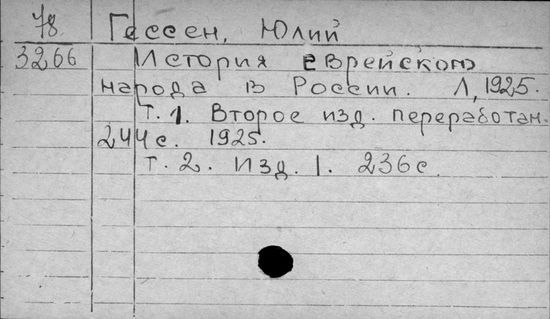 78 Гессен, Юлий
3266 История еврейского
народа в России. Л, 1925.
т. 1. Второе изд. переработан.
244с. 1925.
т. 2. Изд. 1. 236с.